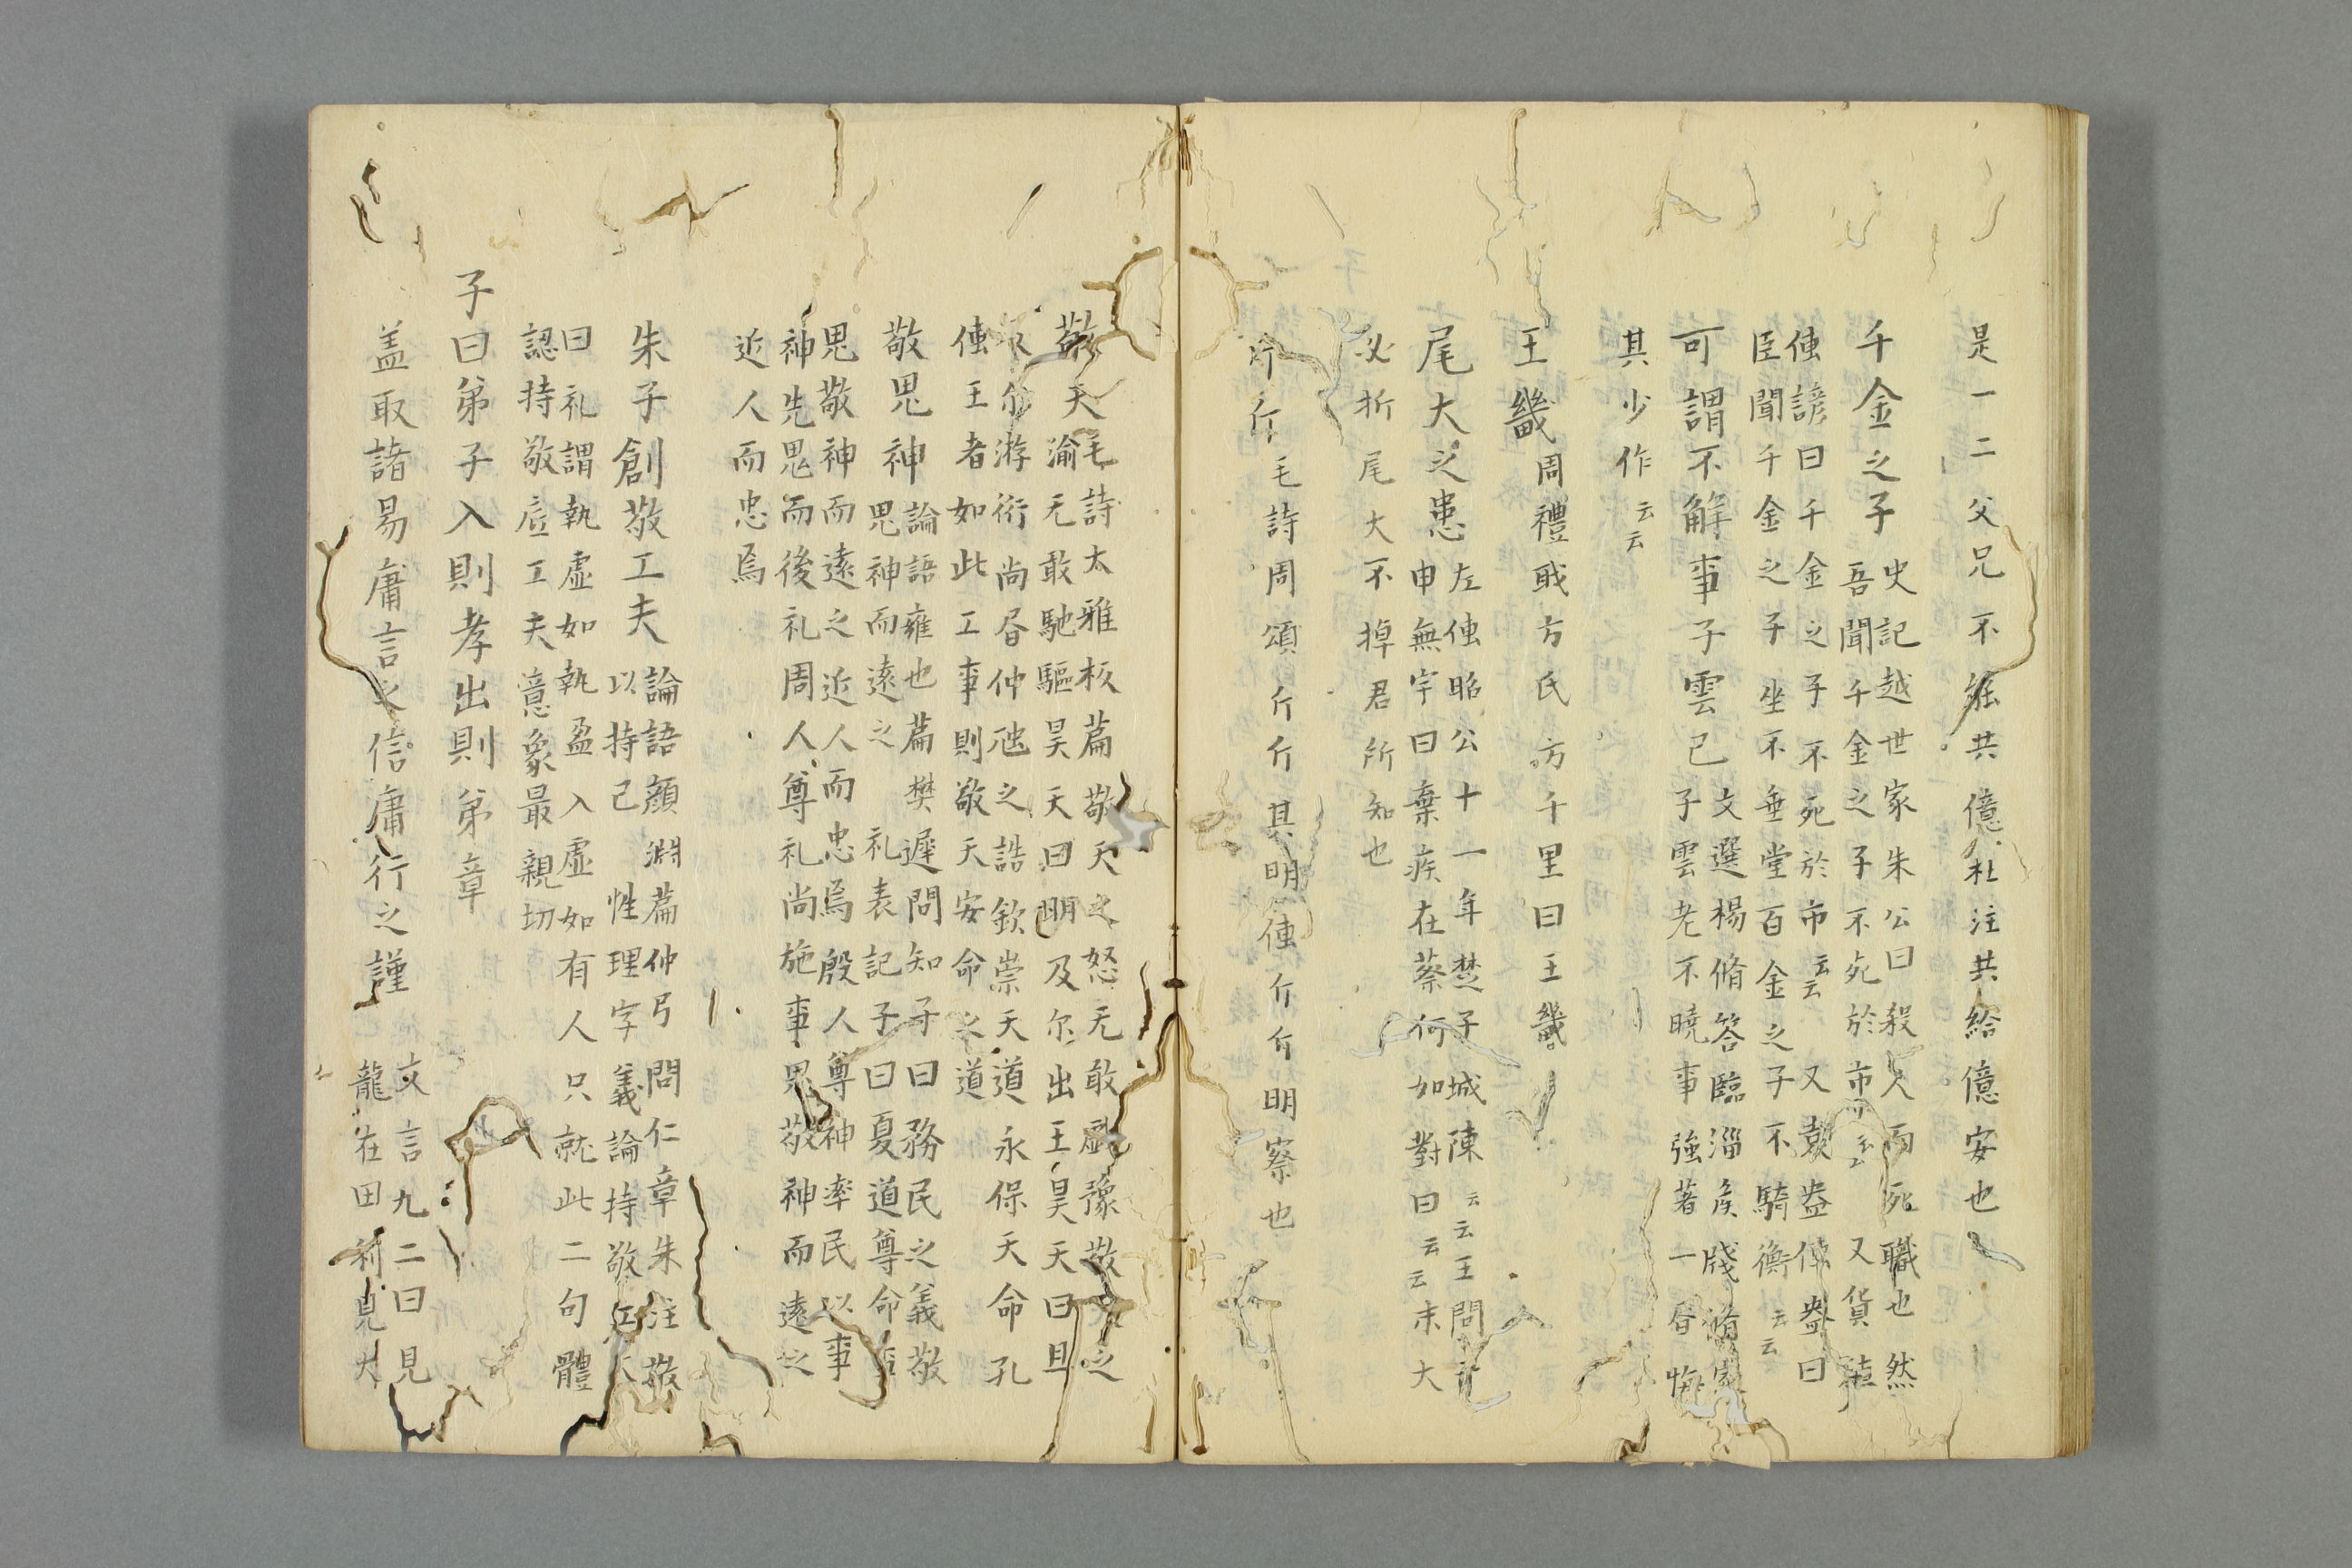 是一二父兄不能共億杜注共給億安也
千金之子
史記越世家朱公曰殺人而死職也然
吾聞千金之子不死於市云云 又貨殖
傳諺曰千金之子不死於市云云 又袁盎傳盎曰
臣聞千金之子坐不垂堂百金之子不騎衡云云
可謂不解事子雲已
文選楊脩答臨淄侯牋脩家
子雲老不曉事強著一書悔
其少作云云
王畿周禮戢方氏方千里曰王畿
尾大之患
左傳昭公十一年楚子城陳云云王問
申無宇曰棄疾在蔡何如對曰云云末大
必折尾大不掉君所知也
斤斤毛詩周頌斤斤其明傳斤斤明察也
敬天
毛詩太雅板篇敬天之怒无敢戲豫敬天之
渝无敢馳驅昊天曰明及尔出王昊天曰旦
及尔游衍尚書仲虺之誥欽崇天道永保天命孔
傳王者如此工事則敬天安命之道
敬鬼神
論語雍也篇樊遲問知子曰務民之義敬
鬼神而遠之 礼表記子曰夏道尊命事
鬼敬神而遠之近人而忠焉殷人尊神率民以事
神先鬼而後礼周人尊礼尚施事鬼敬神而遠之
近人而忠焉
朱子創敬工夫
論語顔淵篇仲弓問仁章朱注敬
以持己 性理字義論持敬工夫
曰礼謂執虛如執盈入虛如有人只就此二句體
認持敬底工夫意象最親切
子曰弟子入則孝出則弟章
盖取諸易庸言之信庸行之謹
文言九二曰見
龍在田利見大